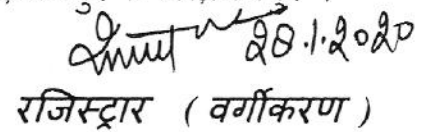 28.1.2020
रजिस्ट्रार ( वर्गीकरण )